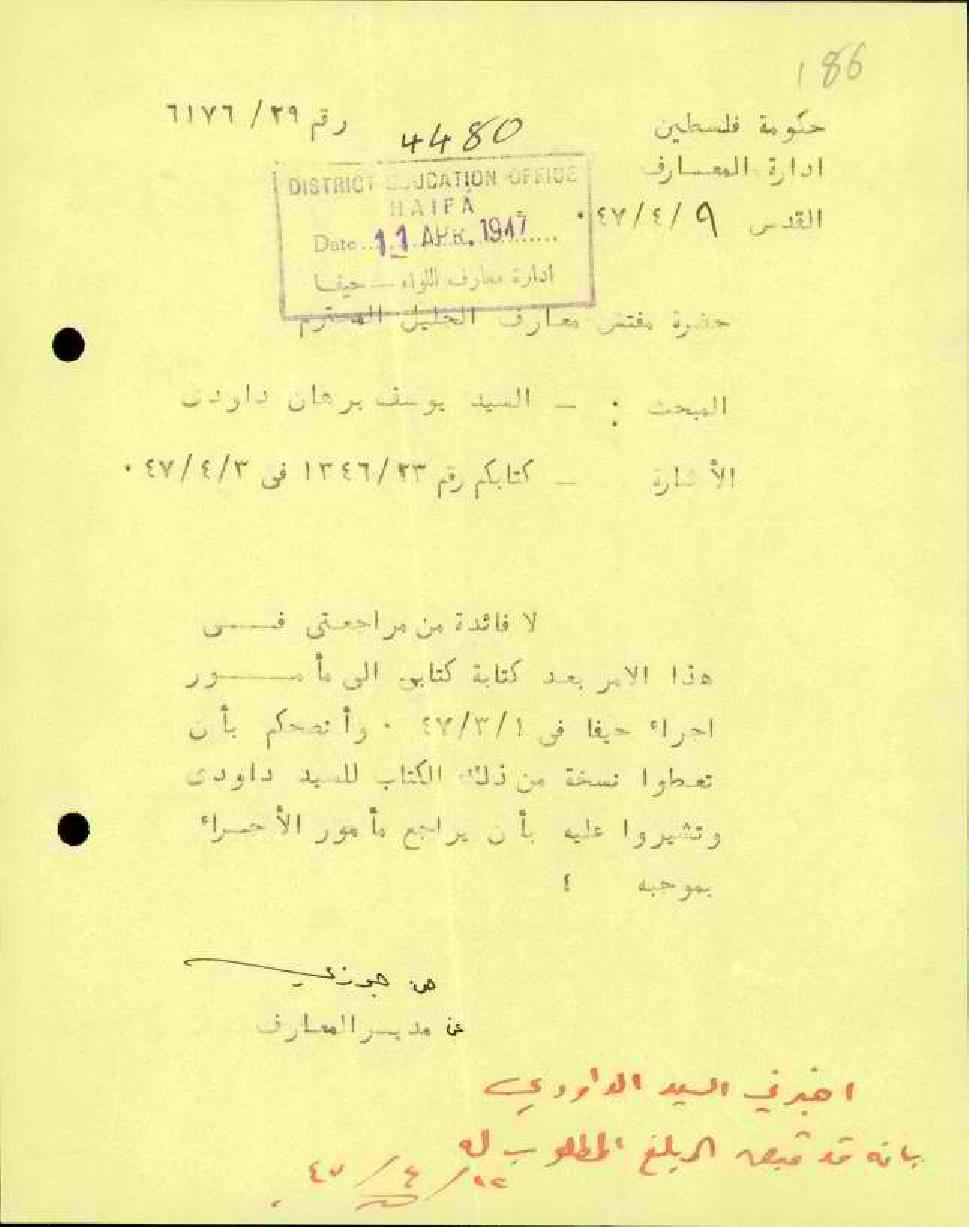 186
رقم ٢٩/ ٦١٧٦
4480
حكومة فلسطين
ادارة المعـارف
القدس ٩/٤/٤٧.
DISTRICT EDUCATION OFFICE
HAIFA
Date 11 APR. 1947
ادارة معارف اللواء — حيفـا
حضرة مفتش معارف الجليل المحترم
المبحث : - السيد يوسف برهان داودى
الأشارة - كتابكم رقم ١٣٤٦/٢٣ فى ٤٧/٤/٣.
لا فائدة من مراجعتى فـــى
هذا الامر بعد كتابة كتابى الى مأمـــور
اجراء حيفا فى ٤٧/٣/١ . وأنصحكم بأن
تعطوا نسخة من ذلك الكتاب للسيد داودى
وتشيروا عليه بأن يراجع مأمور الأجـراء
بموجبه
جوزي
عن مديـر المعـارف
اخبرني السيد الداودي
بانه قد قبض المبلغ المطلوب له
٢٢/٤/٤٧